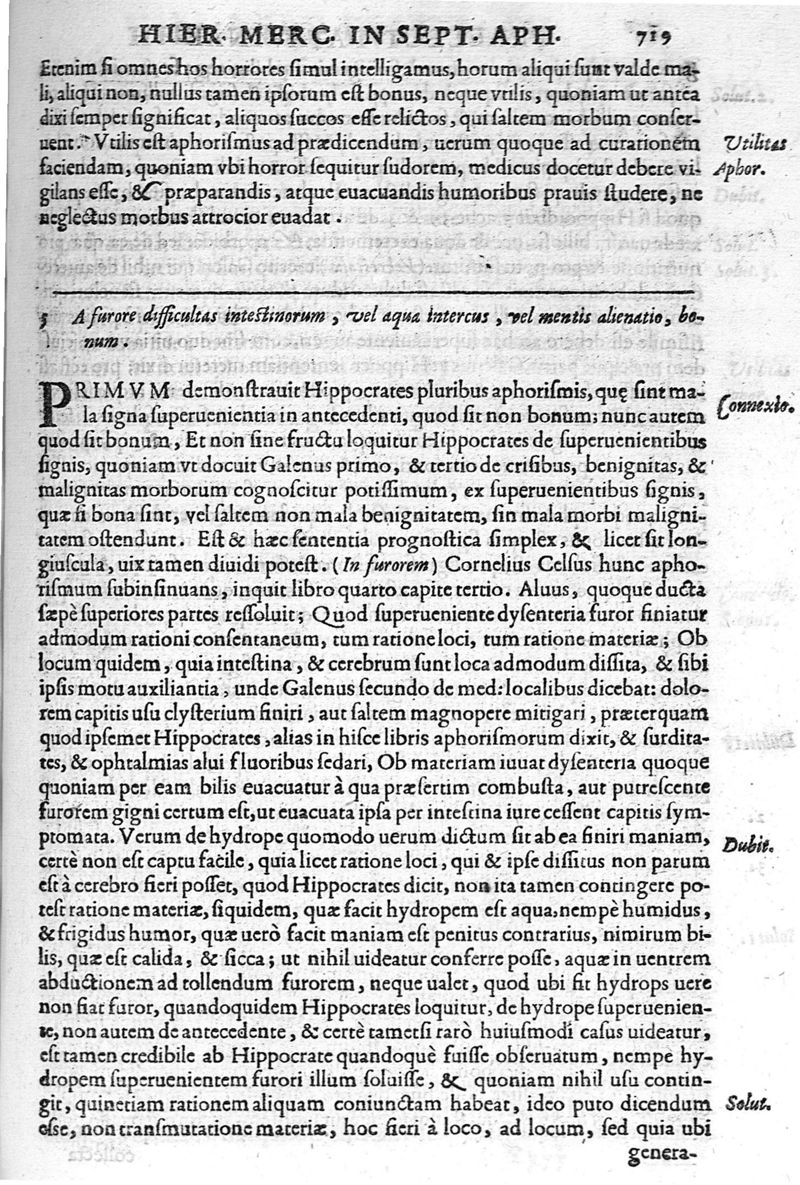 HIER. MERC. IN SEPT. APH. 719
Etenim si omnes hos horrores simul intelligamus, horum aliqui sunt valde ma-
li, aliqui non, nullus tamen ipsorum est bonus, neque vtilis, quoniam ut antea
dixi semper significat, aliquos succos esse relictos, qui saltem morbum conser-
uent. Vtilis est aphorismus ad prædicendum, uerum quoque ad curationem
Utilitas
faciendam, quoniam vbi horror sequitur sudorem, medicus docetur debere vi-
Aphor.
gilans esse, & præparandis, atque euacuandis humoribus prauis studere, ne
neglectus morbus attrocior euadat.
5 A furore difficultas intestinorum, vel aqua intercus, vel mentis alienatio, bo-
num.
PRIMVM demonstrauit Hippocrates pluribus aphorismis, quę sint ma-
la signa superuenientia in antecedenti, quod sit non bonum; nunc autem
Connexio.
quod sit bonum, Et non sine fructu loquitur Hippocrates de superuenientibus
signis, quoniam vt docuit Galenus primo, & tertio de crisibus, benignitas, &
malignitas morborum cognoscitur potissimum, ex superuenientibus signis,
quæ si bona sint, vel saltem non mala benignitatem, sin mala morbi maligni-
tatem ostendunt. Est & hæc sententia prognostica simplex, & licet sit lon-
giuscula, uix tamen diuidi potest. (In furorem) Cornelius Celsus hunc apho-
rismum subinsinuans, inquit libro quarto capite tertio. Aluus, quoque ducta
sæpè superiores partes ressoluit; Quod superueniente dysenteria furor finiatur
admodum rationi consentaneum, tum ratione loci, tum ratione materiæ; Ob
locum quidem, quia intestina, & cerebrum sunt loca admodum dissita, & sibi
ipsis motu auxiliantia, unde Galenus secundo de med: localibus dicebat: dolo-
rem capitis usu clysterium finiri, aut saltem magnopere mitigari, præterquam
quod ipsemet Hippocrates, alias in hisce libris aphorismorum dixit, & surdita-
tes, & ophtalmias alui fluoribus sedari, Ob materiam iuuat dysenteria quoque
quoniam per eam bilis euacuatur à qua præsertim combusta, aut putrescente
furorem gigni certum est, ut euacuata ipsa per intestina iure cessent capitis sym-
ptomata. Verum de hydrope quomodo uerum dictum sit ab ea finiri maniam,
Dubit.
certè non est captu facile, quia licet ratione loci, qui & ipse dissitus non parum
est à cerebro fieri posset, quod Hippocrates dicit, non ita tamen contingere po-
test ratione materiæ, siquidem, quæ facit hydropem est aqua, nempè humidus,
& frigidus humor, quæ uerò facit maniam est penitus contrarius, nimirum bi-
lis, quæ est calida, & sicca; ut nihil uideatur conferre posse, aquæ in uentrem
abductionem ad tollendum furorem, neque ualet, quod ubi fit hydrops uere
non fiat furor, quandoquidem Hippocrates loquitur, de hydrope superuenien-
te, non autem de antecedente, & certè tametsi rarò huiusmodi casus uideatur,
est tamen credibile ab Hippocrate quandoquè fuisse obseruatum, nempe hy-
dropem superuenientem furori illum soluisse, & quoniam nihil usu contin-
git, quinetiam rationem aliquam coniunctam habeat, ideo puto dicendum
Solut.
esse, non transmutatione materiæ, hoc fieri à loco, ad locum, sed quia ubi
genera-